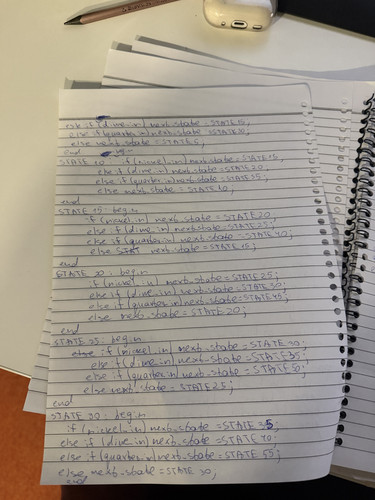 else if (dime.in) next-state = STATE15;
else if (quarter.in) next-state = STATE30;
else next-state = STATE5;
end
STATE 10: if (nickel.in) next-state = STATE15,
else if (dime.in) next-state = STATE20
else if (quarter.in) next-state = STATE35;
else next-state = STATE10;
end
STATE 15: begin
if (nickel.in) next-state = STATE20
else if (dime.in) next-state = STATE25;
else if (quarter.in) next-state = STATE40;
else next-state = STATE15;
end
STATE 20: begin
if (nickel.in) next-state = STATE25;
else if (dime.in) next-state = STATE30;
else if (quarter.in) next-state = STATE45;
else next-state = STATE20;
end
STATE 25: begin
else if (nickel.in) next-state = STATE 30
else if (dime.in) next-state = STATE35;
else if (quarter.in) next-state = STATE50;
else next-state = STATE25;
end
STATE 30: begin
if (nickel.in) next-state = STATE 35;
else if (dime.in) next-state = STATE 40;
else if (quarter.in) next-state = STATE 55;
else next-state = STATE 30;
end